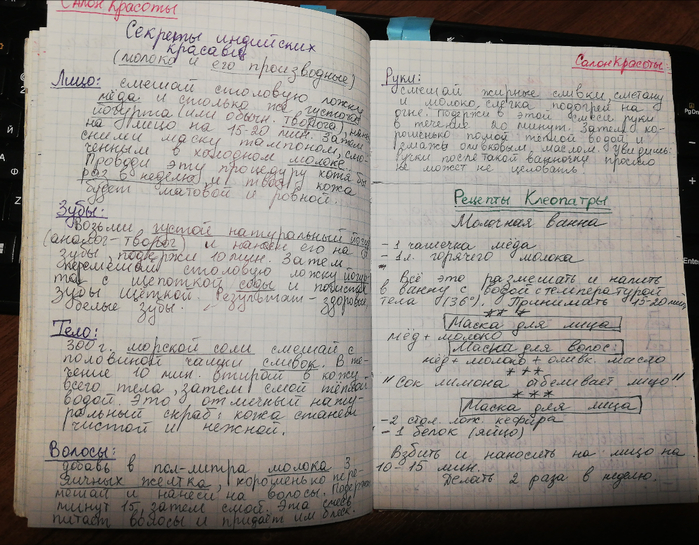 Салон Красоты
Секреты индийских
красавиц
(молоко и его производные)
Лицо: смешай столовую ложку
мёда и столько же густого
йогурта (или обычн. творога), нане-
на лицо на 15-20 мин. Затем
сними маску тампоном, смо-
ченным в холодном молоке.
Проводи эту процедуру хотя бы
раз в неделю, и твоя кожа
будет матовой и ровной.
Зубы:
Возьми густой натуральный йогур
(аналог-творог) и нанеси его на
зубы, подержи 10 мин. Затем
перемешай столовую ложку йогур
та с щепоткой соды и почисти
зубы щёткой. Результат - здоровые,
белые зубы.
Тело:
300 г. морской соли смешай с
половиной чашки сливок. В те-
чение 10 мин. втирай в кожу
всего тела, затем смой тёплой
водой. Это отличный нату-
ральный скраб: кожа станет
чистой и нежной.
Волосы:
добавь в пол-литра молока 3
яичных желтка, хорошенько пере-
мешай и нанеси на волосы. Подержи
минут 15, затем смой. Эта смесь
питает волосы и придаёт им блеск.
Салон Красоты
Руки:
Смешай жирные сливки, сметану
и молоко, слегка подогрей на
огне. Подержи в этой смеси руки
в течение 20 минут. Затем хо-
рошенько помой тёплой водой и
смажь оливковым маслом. Увидишь:
ручки после такой ванночки просто
не может не целовать.
Рецепты Клеопатры
Молочная ванна
- 1 чашечка мёда
- 1 л. горячего молока
Всё это размешать и налить
в ванну с водой с температурой
тела (36°). Принимать 15-20 мин.
***
Маска для лица
мёд + молоко
Маска для волос:
мёд + молоко + оливк. масло
***
"Сок лимона отбеливает лицо"
***
Маска для лица
- 2 стол. лож. кефира
- 1 белок (яйцо)
Взбить и наносить на лицо на
10-15 мин.
Делать 2 раза в неделю.